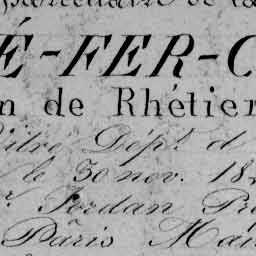 É-FER-C
n de Rhétier
Vitré Dépt. d
le 30 nov. 18
r Jordan Pr
Pâris Mai